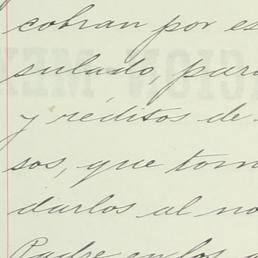 cobran por es
sulado, para
y réditos de
sos, que tom
darlos al no
Padre en los